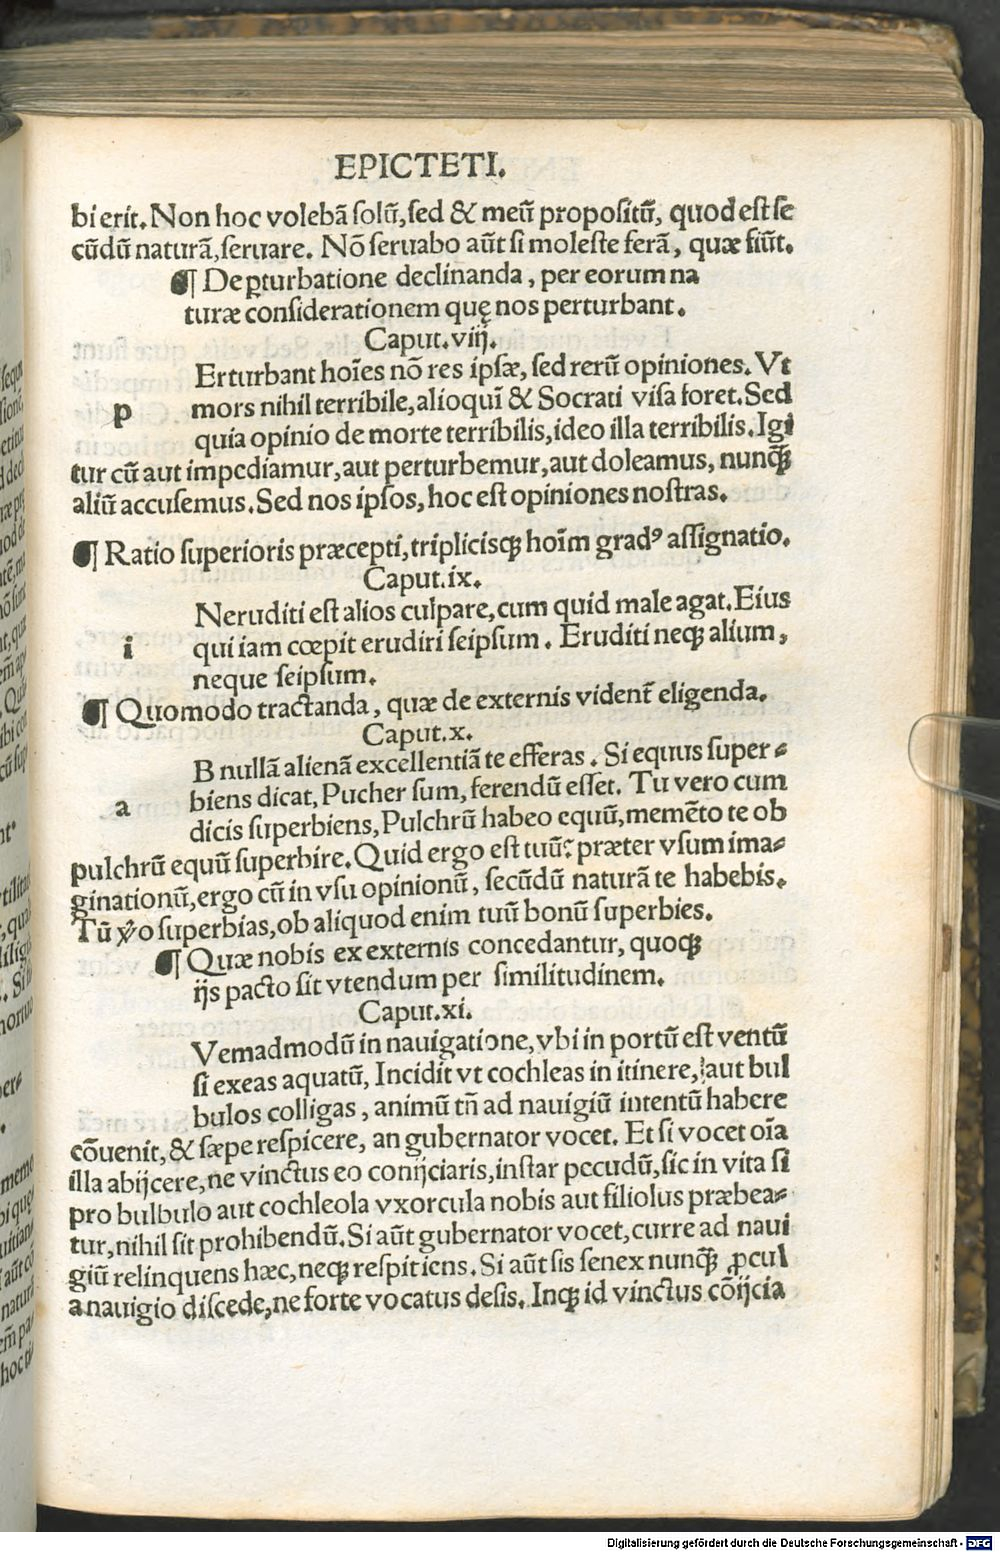 EPICTETI.
bi erit. Non hoc volebã ſolũ, ſed & meũ propoſitũ, quod eſt ſe
cũdũ naturã, ſeruare. Nõ ſeruabo aũt ſi moleſte ferã, quæ fiũt.
¶ De ꝑturbatione declinanda, per eorum na
turæ conſiderationem quę nos perturbant.
Caput. viij.
Erturbant hoĩes nõ res ipſæ, ſed rerũ opiniones. Vt
p mors nihil terribile, alioqui & Socrati viſa foret. Sed
quia opinio de morte terribilis, ideo illa terribilis. Igi
tur cũ aut impediamur, aut perturbemur, aut doleamus, nunq̃ꝫ
aliũ accuſemus. Sed nos ipſos, hoc eſt opiniones noſtras.
¶ Ratio ſuperioris præcepti, tripliciſqꝫ hoĩm gradꝰ aſſignatio.
Caput. ix.
Neruditi eſt alios culpare, cum quid male agat. Eius
i qui iam cœpit erudiri ſeipſum. Eruditi neqꝫ alium,
neque ſeipſum.
¶ Quomodo tractanda, quæ de externis vident̃ eligenda.
Caput. x.
B nullã alienã excellentiã te efferas. Si equus ſuper⸗
a biens dicat, Pucher ſum, ferendũ eſſet. Tu vero cum
dicis ſuperbiens, Pulchrũ habeo equũ, memẽto te ob
pulchrũ equũ ſuperbire. Quid ergo eſt tuũ? præter vſum ima⸗
ginationũ, ergo cũ in vſu opinionũ, ſecũdũ naturã te habebis.
Tũ ṽo ſuperbias, ob aliquod enim tuũ bonũ ſuperbies.
¶ Quæ nobis ex externis concedantur, quoqꝫ
ijs pacto ſit vtendum per ſimilitudinem.
Caput. xi.
Vemadmodũ in nauigatione, vbi in portũ eſt ventũ
ſi exeas aquatũ, Incidit vt cochleas in itinere, aut bul
bulos colligas, animũ tñ ad nauigiũ intentũ habere
cõuenit, & ſæpe reſpicere, an gubernator vocet. Et ſi vocet oĩa
illa abijcere, ne vinctus eo conijciaris, inſtar pecudũ, ſic in vita ſi
pro bulbulo aut cochleola vxorcula nobis aut filiolus præbea⸗
tur, nihil ſit prohibendũ. Si aũt gubernator vocet, curre ad naui
giũ relinquens hæc, neqꝫ reſpitiens. Si aũt ſis ſenex nunq̃ꝫ ꝓcul
a nauigio diſcede, ne forte vocatus deſis. Inqꝫ id vinctus cõijcia
Digitalisierung gefördert durch die Deutsche Forschungsgemeinschaft - DFG